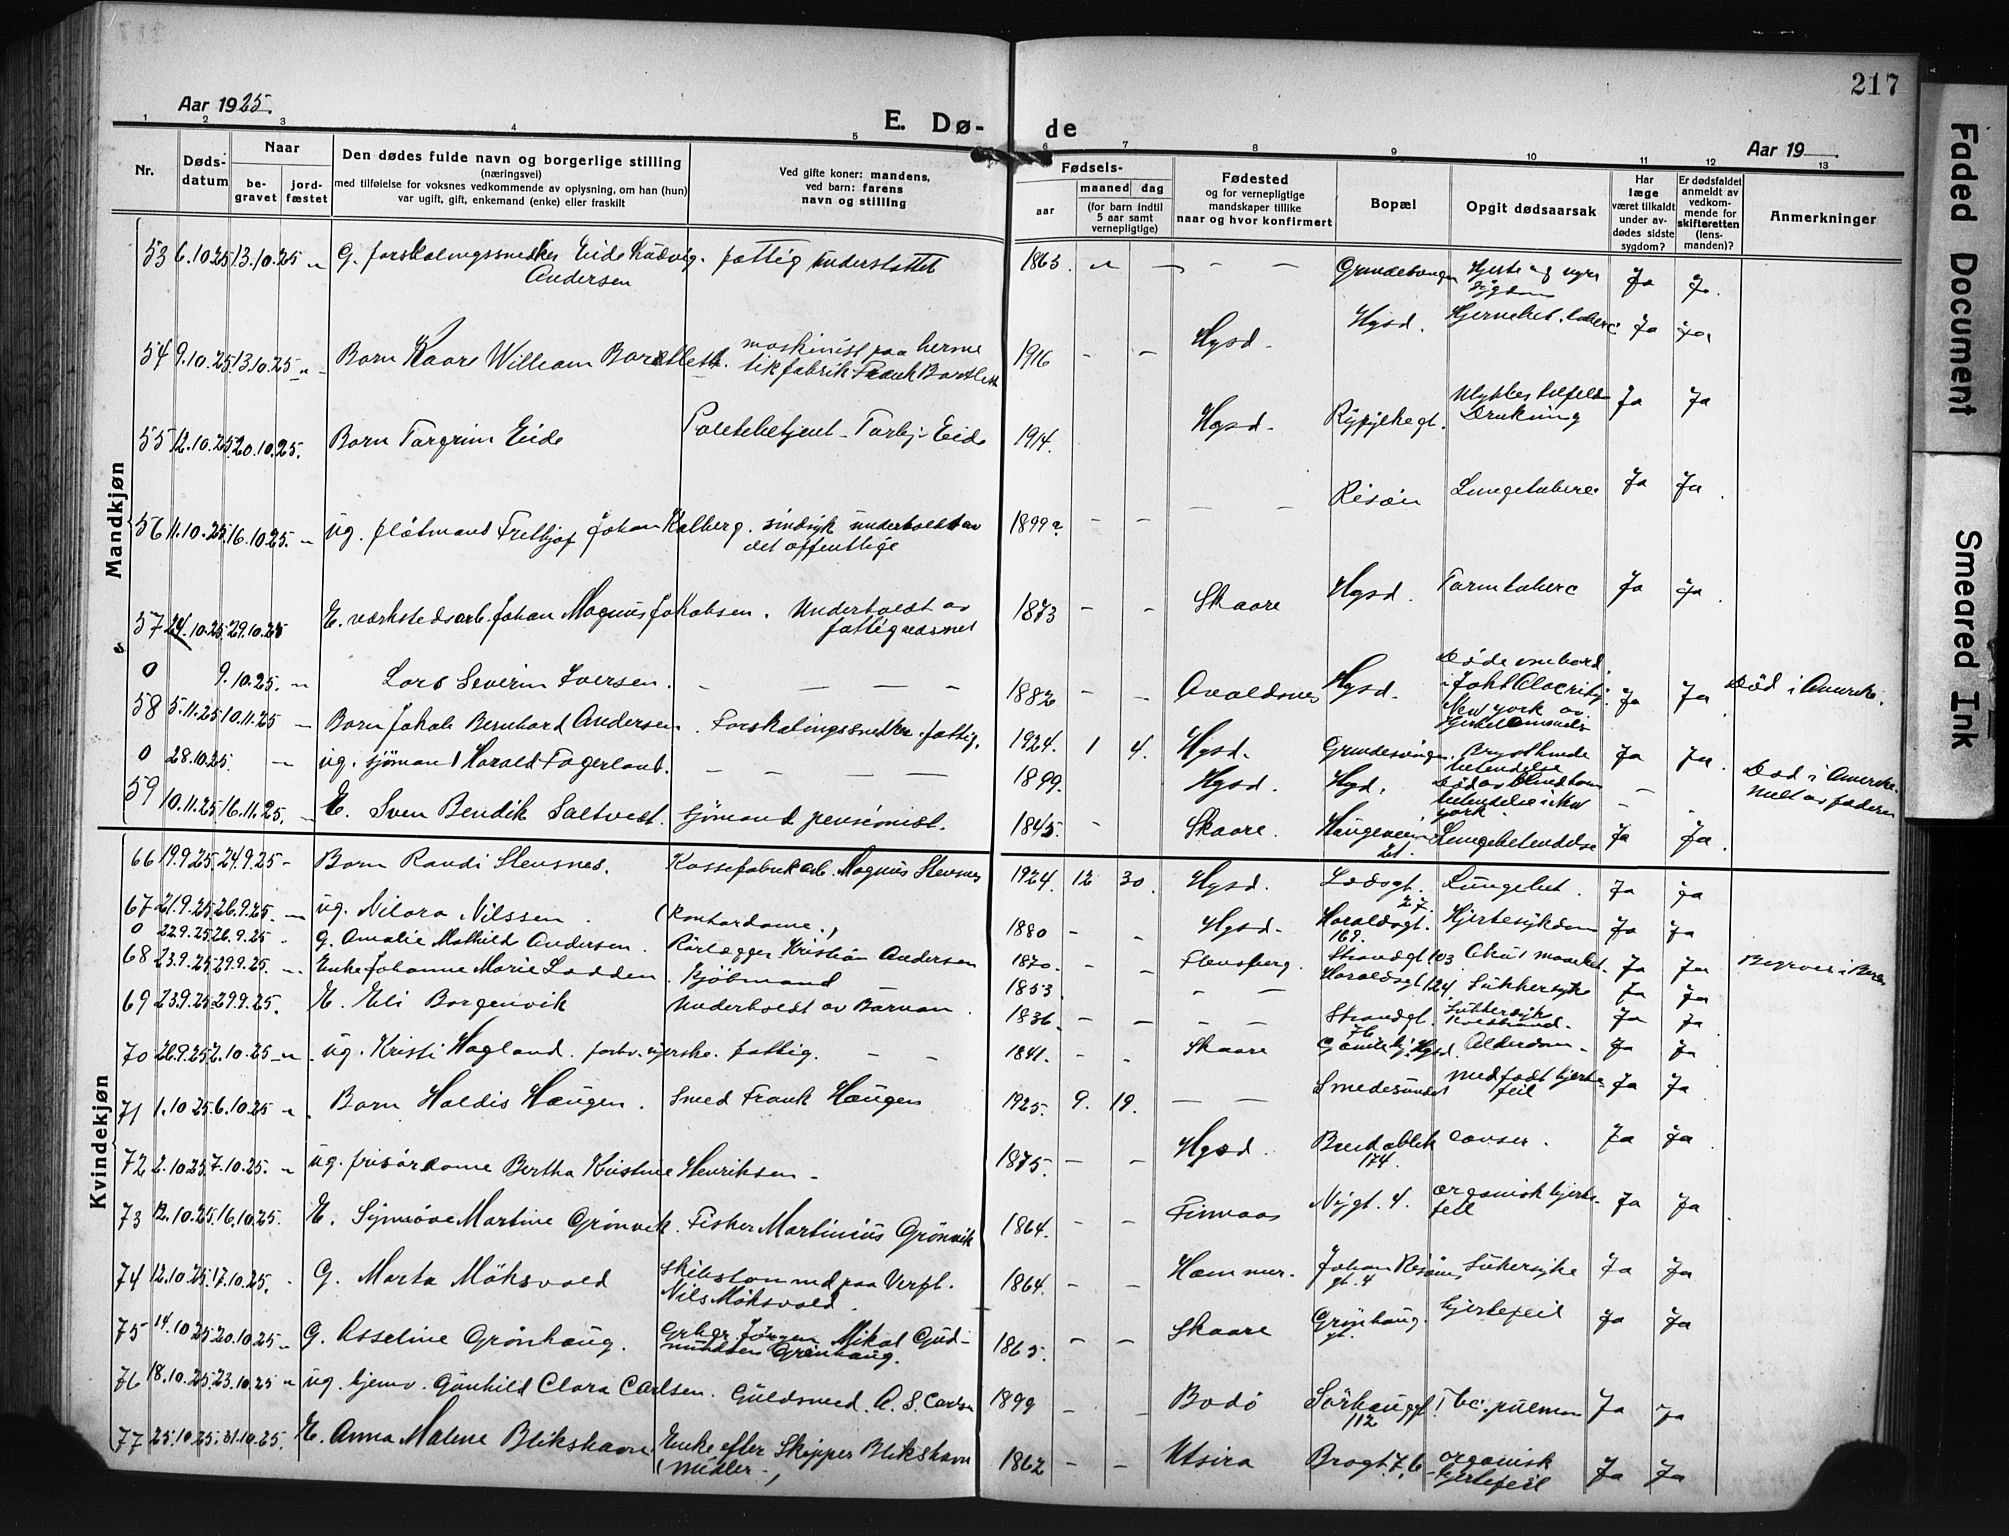 217
Aar 1925.
E. Dø-
de
Aar 19
1 2 3 4 5 6 7 8 9 10 11 12 13
Nr.
Døds-
datum
Naar
be-
gravet
jord-
fæstet
Den dødes fulde navn og borgerlige stilling
(næringsvei)
med tilføielse for voksnes vedkommende av oplysning, om han (hun)
var ugift, gift, enkemand (enke) eller fraskilt
Ved gifte koner: mandens,
ved barn: farens
navn og stilling
Fødsels-
aar
maaned
dag
(for barn indtil
5 aar samt
vernepligtige)
Fødested
og for vernepligtige
mandskaper tillike
naar og hvor konfirmert
Bopæl
Opgit dødsaarsak
Har
læge
været tilkaldt
under av-
dødes sidste
sygdom?
Er dødsfaldet
anmeldt av
vedkom-
mende for
skifteretten
(lens-
manden)?
Anmerkninger
Mandkjøn
53 6.10.25 13.10.25 " G. forskalingssnedker Eide Ludvig
Andersen
fattig understøttet 1863. " — - — Ja Ja.
54 9.10.25 13.10.25 " Barn Kaare William Bartlett. maskinist paa herme
tikfabrik Frank Bartlett 1916 - - Hgsd. Hgsd. Ja Ja
55 12.10.25 20.10.25. Barn Torgrim Eide Politibetjent Torbj. Eide 1914. Hgsd. Ulykkestilfelde
Drukning Ja Ja
56 11.10.25 16.10.25. " ug. Fritjof Johan Kalberg. sindsyk underholdt av
det offentlige 1899 - - - - Risøen Lungetuberc Ja Ja
57 24.10.25 29.10.25 E. værkstedsarb. Johan Magnus Jakobsen. Underholdt av
fattigvæsnet 1873 - - Skaare Hgsd. Tarmtuberc Ja Ja
0 9.10.25. " Lars Severin Iversen. - - - - 1882 - - Avaldsnes Hgsd. Døde ombord
New York av
Ja Ja Død i Amerika.
58 5.11.25 10.11.25 - Barn Jakob Bernhard Andersen. Forskalingssnedker. fattig. 1924. 1 4. Hgsd. Brysthinde
betendelse Ja Ja
0 28.10.25. " ug. sjømand Harald Fagerland. - - - - 1899. Hgsd. Hgsd. Død av Blindtarm
betendelse i New
York. - - Død i Amerika.
Melt av faderen
59 10.11.25 16.11.25. - E. Sven Bendik Saltvedt. sjømand pensionist. 1845. - Skaare. Haugeveien
21. Lungebetendelse Ja Ja
Kvindekjøn
66 19.9.25 24.9.25 - Barn Randi Stensnes. Kassefabrikarb. Magnus Stensnes 1924. 12 30. Hgsd. Ladegt.
27. Lungebet. Ja Ja
67 21.9.25 26.9.25. - ug. Nilara Nilssen. (Kontordame.) 1880 - - Hgsd. Haraldsgt.
169. Hjertesykdom Ja Ja
0 22.9.25 26.9.25 . G. Amalie Mathild Andersen. Rørlægger Kristian Andersen 1870. - - Flensberg. Strandgt 103 Ja Ja
68 23.9.25 29.9.25. - Enke Johanne Marie Ladden. Kjøbmand 1853 - - Haraldsgt 124. Sukkersyke Ja Ja
69 23.9.25 29.9.25. E. Eli Borgenvik Underholdt av Barnan. 1836. - - - - Strandgt.
76 Sukkersyk
Koldbrand. Ja Ja
70 26.9.25 2.10.25 " ug. Kristi Hagland. forhv. syerske. fattig. - - 1841. - - Skaare Gamlehj. Hgsd. Alderdom. Ja Ja
71 1.10.25 6.10.25 " Barn Haldis Haugen. Smed Frank Haugen 1925. 9. 19. - - Smedesundet Medfødt hjerte
feil Ja Ja
72 2.10.25 7.10.25. " ug. frisørdame Bertha Kristine Henriksen - 1875. - - Hgsd. Breidablik
174. cancer. Ja Ja
73 12.10.25. 16.10.25. E. Synnøve Martine Grønvik. Fisker Martinius Grønvik 1864. - - Finnaas Nygt. 4. organisk hjerte-
feil Ja Ja
74 12.10.25. 17.10.25. . G. Marta Møksvold Skibstømmermd paa Verft.
Nils Møksvold. 1864. - - Hammer. Johan Risøens
gt. 4 Sukersyke Ja Ja
75 14.10.25 20.10.25 " G. Asseline Grønhaug. Grbgr. Jørgen Mikal Gud-
mundsen Grønhaug. 1865. - - Skaare Grønhaug
gt. hjertefeil Ja Ja
76 18.10.25. 23.10.25 " ug. hjemv. Gunhild Clara Carlsen. Guldsmed. A. S. Carlsen 1899 - - Bodø Sørhauggt
112 Tbc. pulmon Ja Ja
77 25.10.25. 31.10.25. E. Anna Malene Blikshavn. Enke efter Skipper Blikshavn
1862 - - Utsira Brogt. 7, b organisk
hjertefeil Ja Ja
Faded Document
Smeared Ink